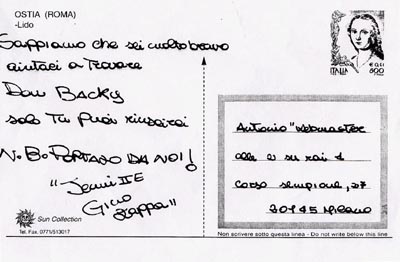 OSTIA (ROMA)
-Lido
Sappiamo che sei molto bravo
aiutaci a Trovare
Don BACKY
solo Tu puoi riuscirci
N.B. PORTALO DA NOI!
"Jenni IIE
Gino
Sun Collection
Tel. Fax. 0771/513017
ITALIA
800
Antonio "webmaster
alle e su rai 1
corso sempione, 27
20145 Milano
Non scrivere sotto questa linea - Do not write below this line